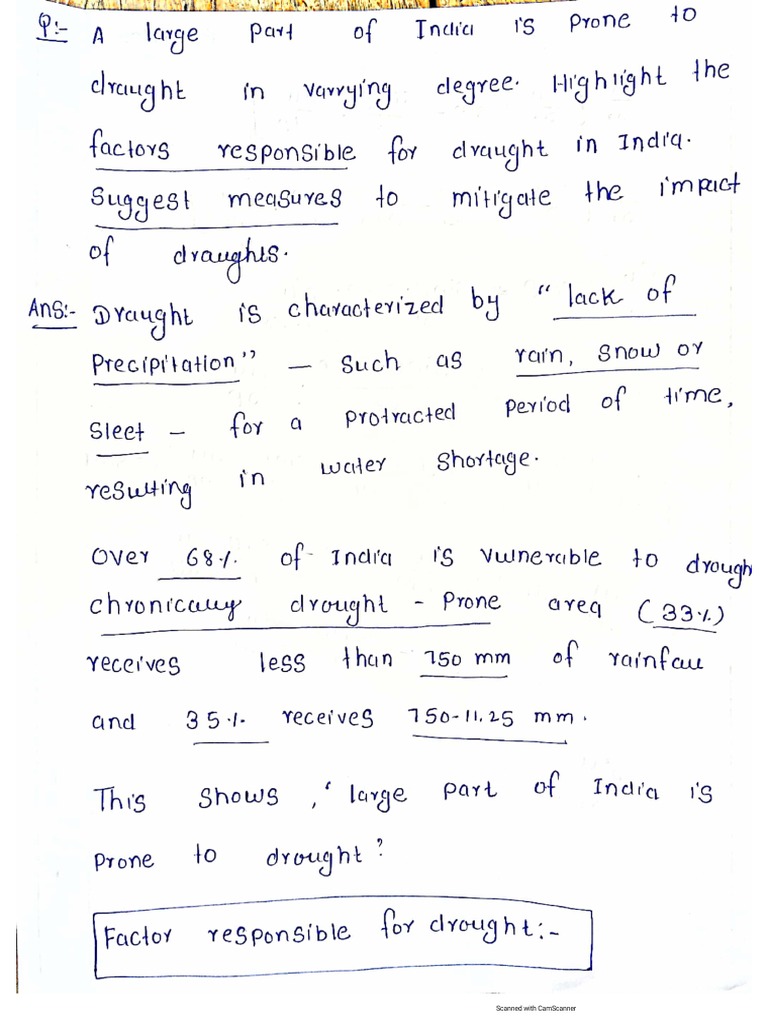 Q:- A large part of India is prone to
draught in varrying degree. Highlight the
factors responsible for draught in India.
Suggest measures to mitigate the impact
of draughts.
Ans:- Draught is characterized by "lack of
Precipitation" – such as rain, snow or
sleet – for a protracted period of time,
resulting in water shortage.
Over 68% of India is vulnerable to drough
chronically drought - prone area (33%)
receives less than 750 mm of rainfall
and 35% receives 750-11.25 mm.
This shows, "large part of India is
prone to drought"
Factor responsible for drought:-
Scanned with CamScanner